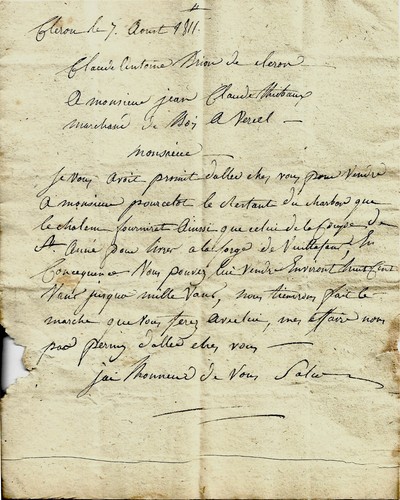 Cleron le 7. Aoust 1811.
Claude Antoine Brion de cleron
A monsieur jean Claude Thibaux
marchand de Boi A Vercel —
monsieur —
je vous avoit promit d'aller chez vous pour vendre
A monsieur pourcelot le restant du charbon que
le chalem fourniret Ainsi que celui de la Coupe de
Ste Anne pour livrer a la forge de Vuillafans, En
Concequance Vous pouvez lui vendre Environt huit Cent
Vans jusqua mille Vans, nous tiendrons fait le
marche que vous ferez avec lui, mes affaire nons
pas permis d'aller chez vous —
jai lhonneur de vous Salue